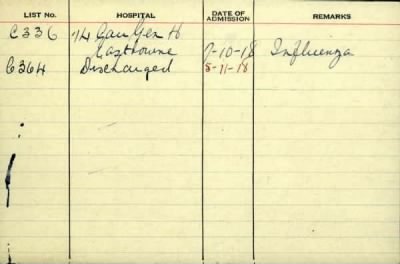 LIST No. HOSPITAL DATE OF ADMISSION REMARKS
C336 14 Can Gen H
Eastbourne 7-10-18 Influenza
C364 Discharged 5-11-18